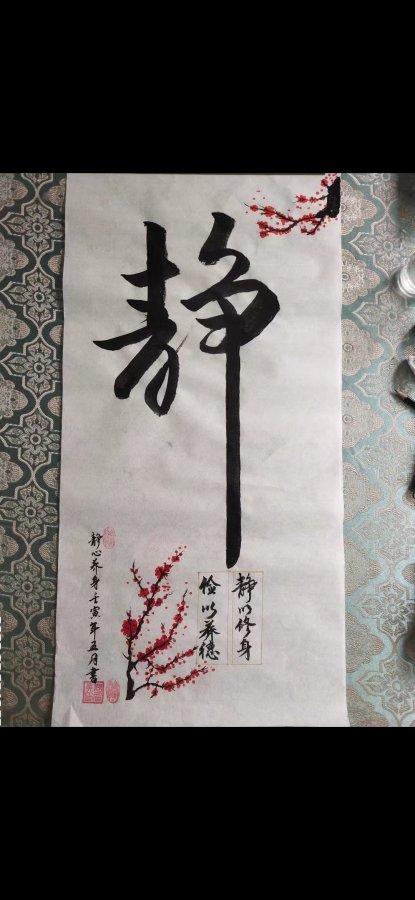 静
静以修身
俭以养德
静心养身壬寅年五月书